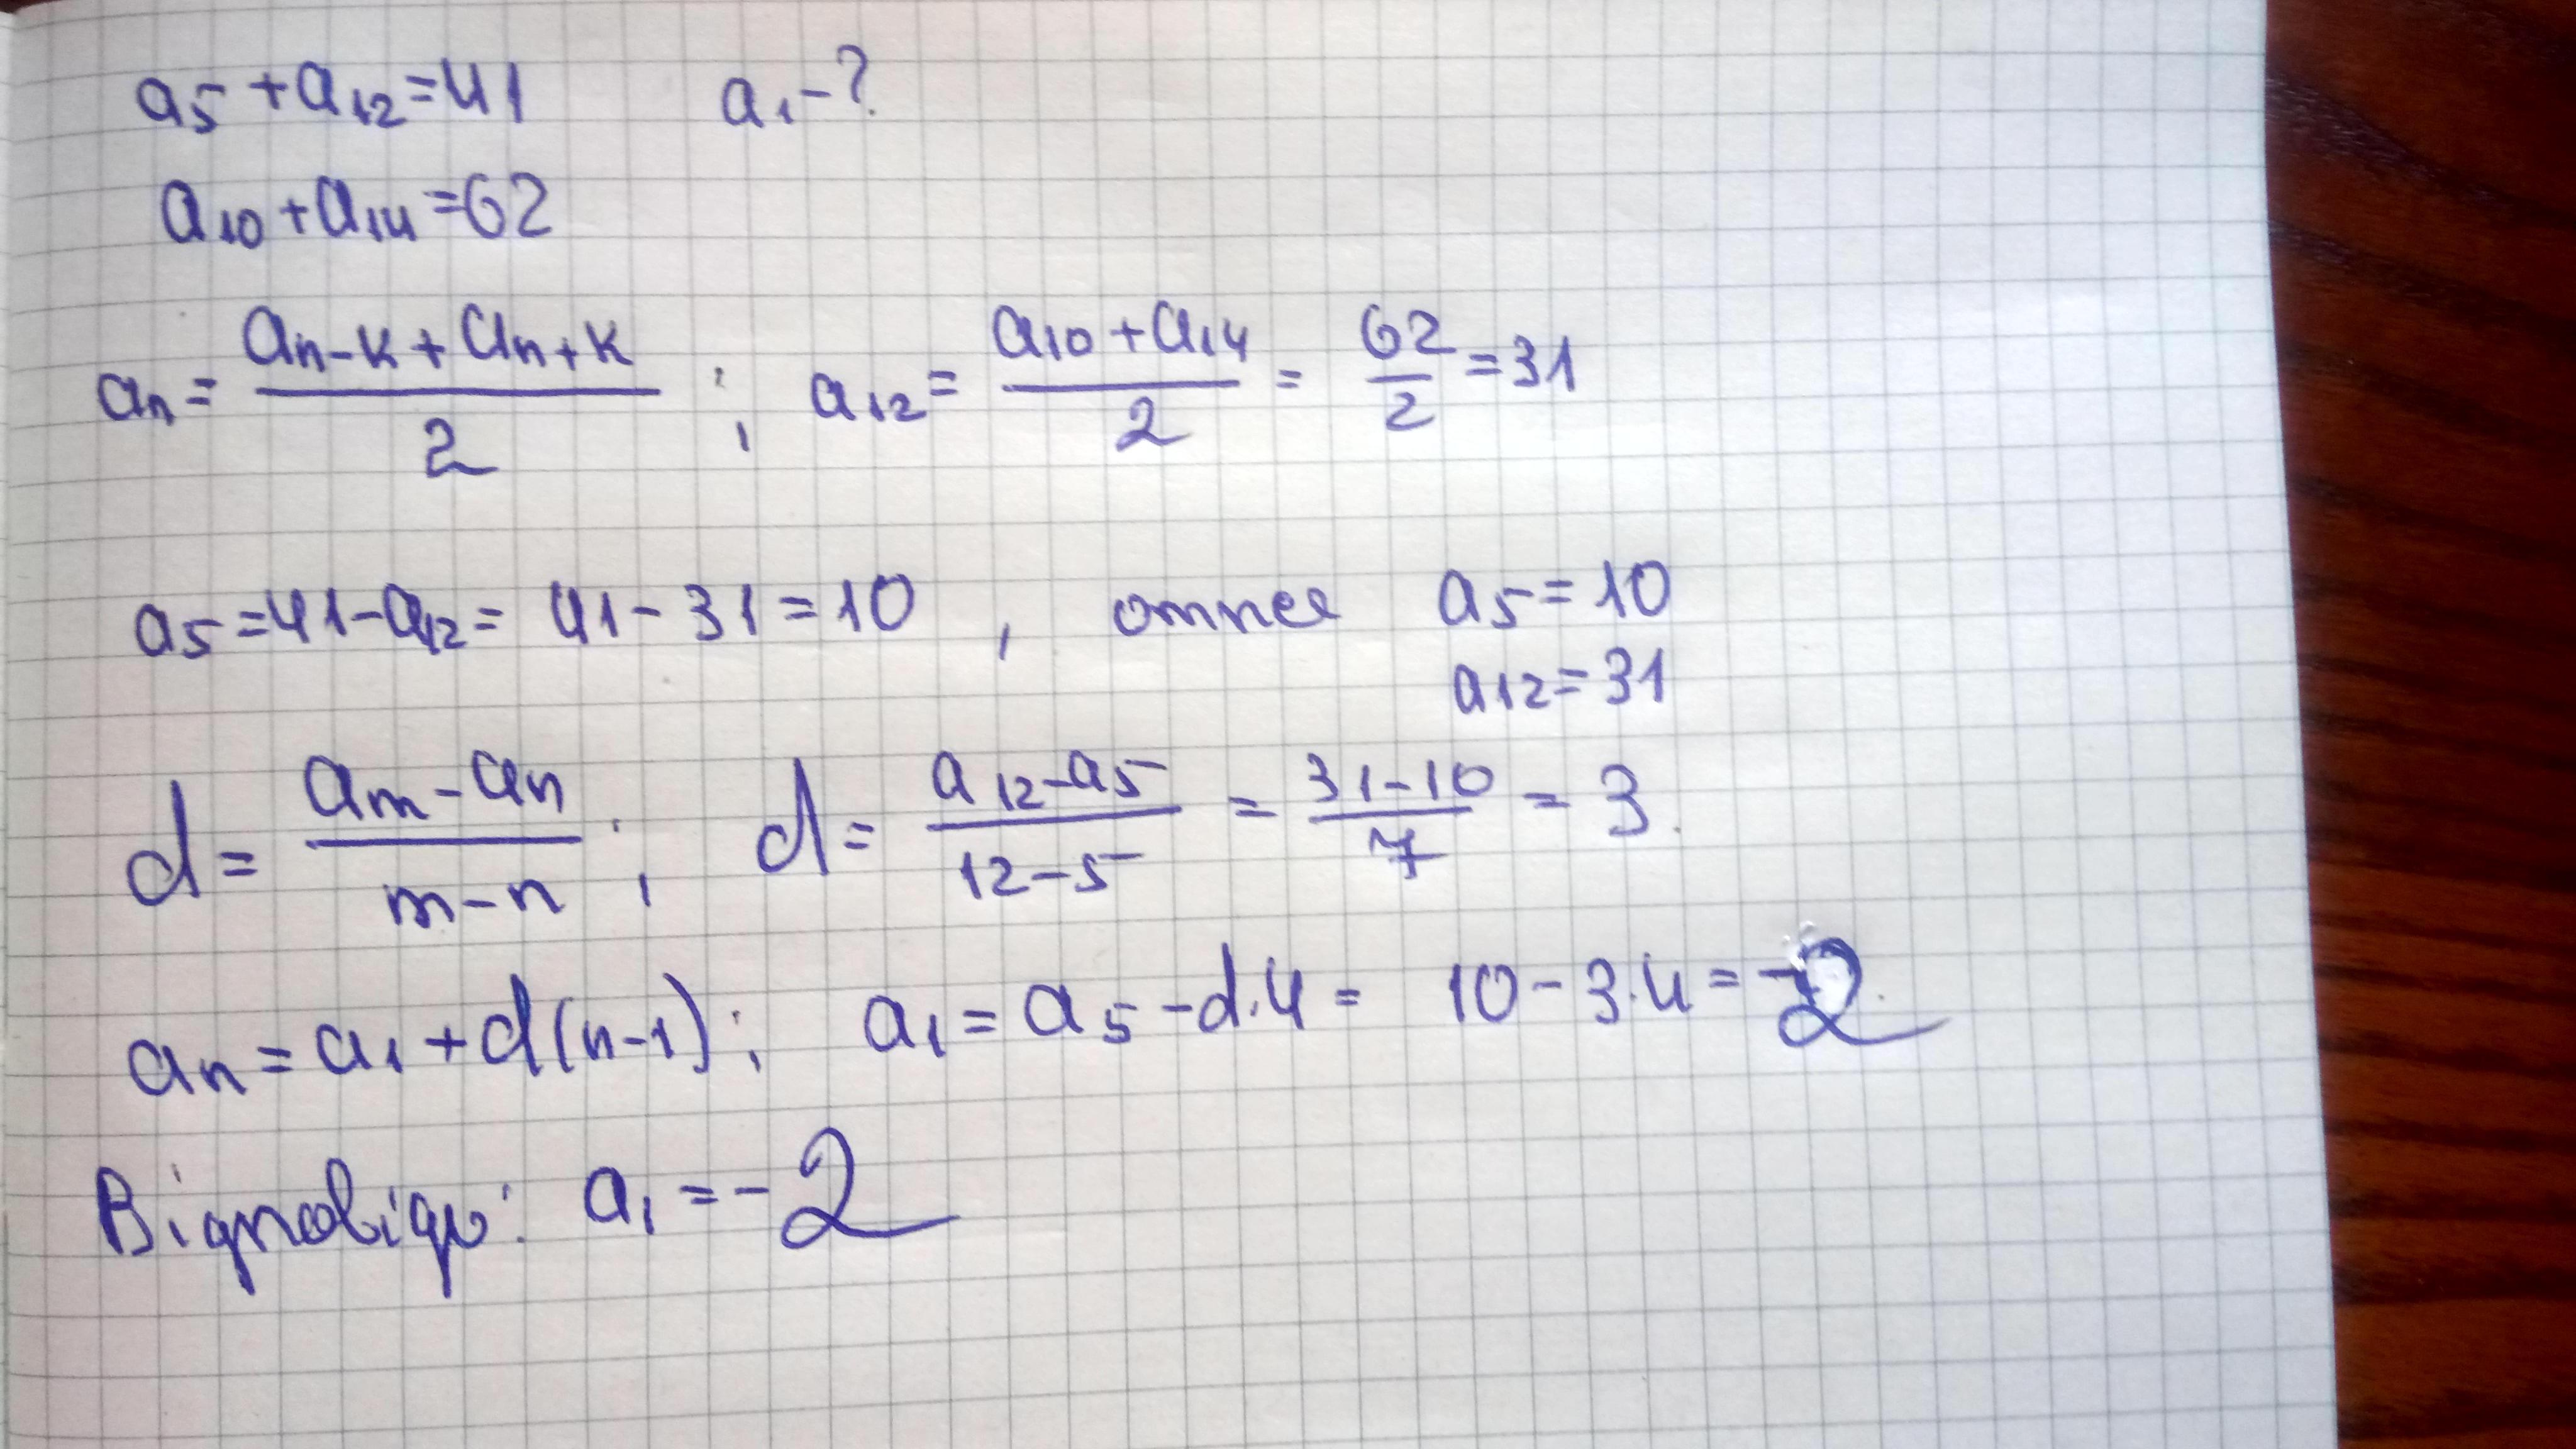 a₅ + a₁₂ = 41 a₁ - ?
a₁₀ + a₁₄ = 62
aₙ = (aₙ₋ₖ + aₙ₊ₖ)/2 ; a₁₂ = (a₁₀ + a₁₄)/2 = 62/2 = 31
a₅ = 41 - a₁₂ = 41 - 31 = 10 , отже a₅ = 10
a₁₂ = 31
d = (aₘ - aₙ)/(m - n) ; d = (a₁₂ - a₅)/(12 - 5) = (31 - 10)/7 = 3.
aₙ = a₁ + d(n-1) ; a₁ = a₅ - d·4 = 10 - 3·4 = -2
Відповідь: a₁ = -2